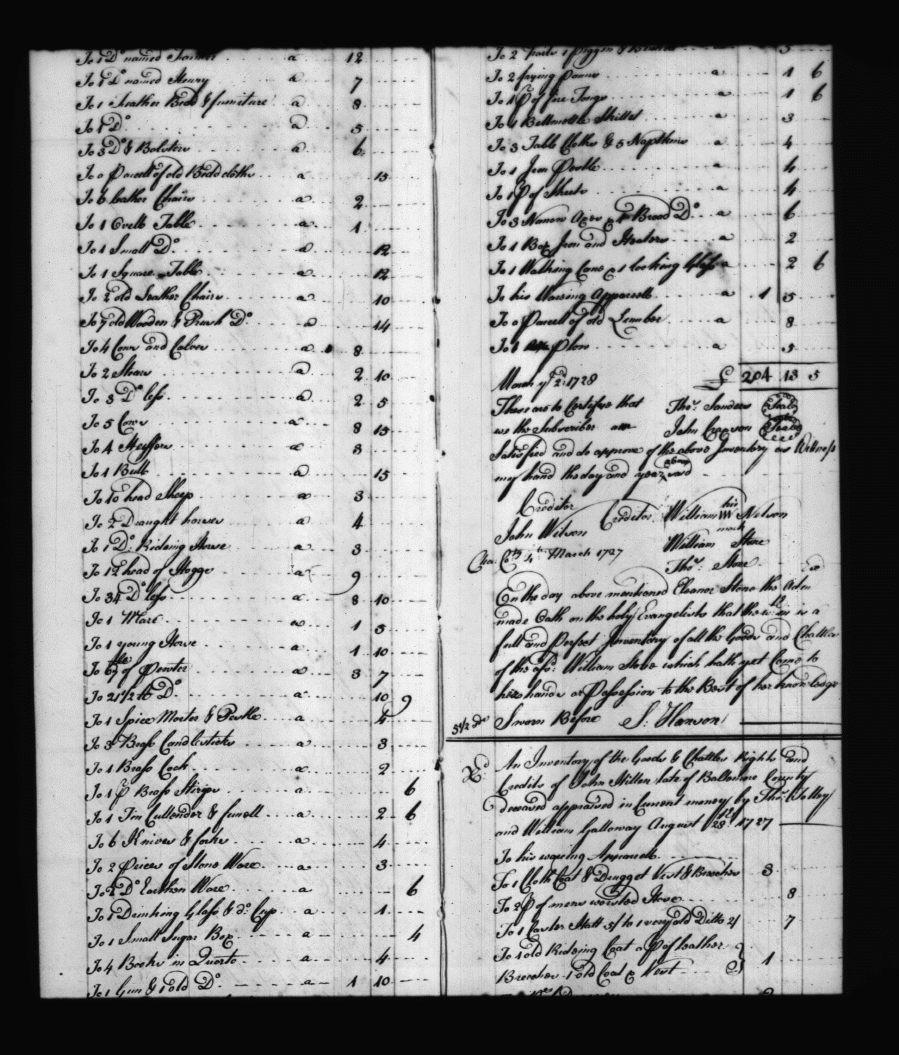 To 1 Do named
To 1 Do named Henry a 7
To 1 Feather Bed & furniture a 8
To 1 Do a 5
To 3 Do & Bolsters a 6
To a Parcell of old Bedd cloths a 15
To 6 leather Chairs a 2
To 1 Ovell Table a 1
To 1 Small Do a 12
To 1 Square Table a 12
To 2 old Leather Chairs a 10
To 7 old Wooden & Do a 14
To 4 Cows and Calves a 8
To 2 Steers a 2 10
To 3 Do less a 2 5
To 5 Cows a 8 15
To 4 Heiffers a 8
To 1 Bull a 15
To 10 head Sheep a 3
To 2 Draught horses a 4
To 1 Do Rideing Horse a 3
To 12 head of Hoggs a 9
To 34 Do less a 8 10
To 1 Mare a 1 5
To 1 young Horse a 1 10
To of Pewter a 3 7
To 21 1/2 lb Do a 10 9
To 1 Spice Morter & Pestle a 4
To 3 Brass Candlesticks a 3
To 1 Brass Cock a 2
To 1 p Brass a 6
To 1 Tin Cullender & funell a 2 6
To 6 Knives & forks a 4
To 2 Pieces of Stone Ware a 3
To 2 Do Earthen Ware a 6
To 1 Drinking Glass & do Cup a 1
To 1 Small Sugar Box a 4
To 4 Books in Quarto a 4
To 1 Gun & 1 old Do a 1 10
To 2
To 2 frying Panns a 1 6
To 1 p of fire Tongs a 1 6
To 1 Bellmettle Skillet a 3
To 3 Table Cloths & 5 Napkins a 4
To 1 Iron Pestle a 4
To 1 p of Sheets a 4
To 3 Narrow Axes & 1 Broad Do a 6
To 1 Box Iron and Heaters a 2
To 1 Walking Cane & 1 looking Glass a 2 6
To his Wareing Apparell a 1 5
To a Parcell of old Lumber a 8
To 1 Plow a 5
£ 204 13 5
March ye 2d 1728
These are to Certifye that Thos. Sanders Seal
we the Subscribers are John Seal
Satisfied and do approve of the above Inventory as Witness
my hand the day and year above said
Creditor William his Nelson
John Wilson Creditor mark
William Stone
Cha: Co. 4th March 1727 Thos. Stone
On the day above mentioned Eleanor Stone the Adm
made Oath on the holy Evangelists that the is a
full and Perfect Inventory of all the Goods and Chattles
of the afd. William Stone which hath yet Come to
her hands or Possession to the Best of her knowledge
5 1/2 Sworn Before S: Hanson
Xd An Inventory of the Goods & Chattles Rights and
Credits of John late of Baltimore County
deceased appraised in Current money by Thos. Tolley
and William Galloway August 28th 1727
To his wearing Apparell
To 1 Cloth Coat & Drugget Vest & Breeches 3
To 2 p of mens worsted Hose 8
To 1 Castor Hatt 5/ to 1 very old Ditto 2/ 7
To 1 old Rideing Coat a p of leather
Breeches 1 old Coat & Vest 1